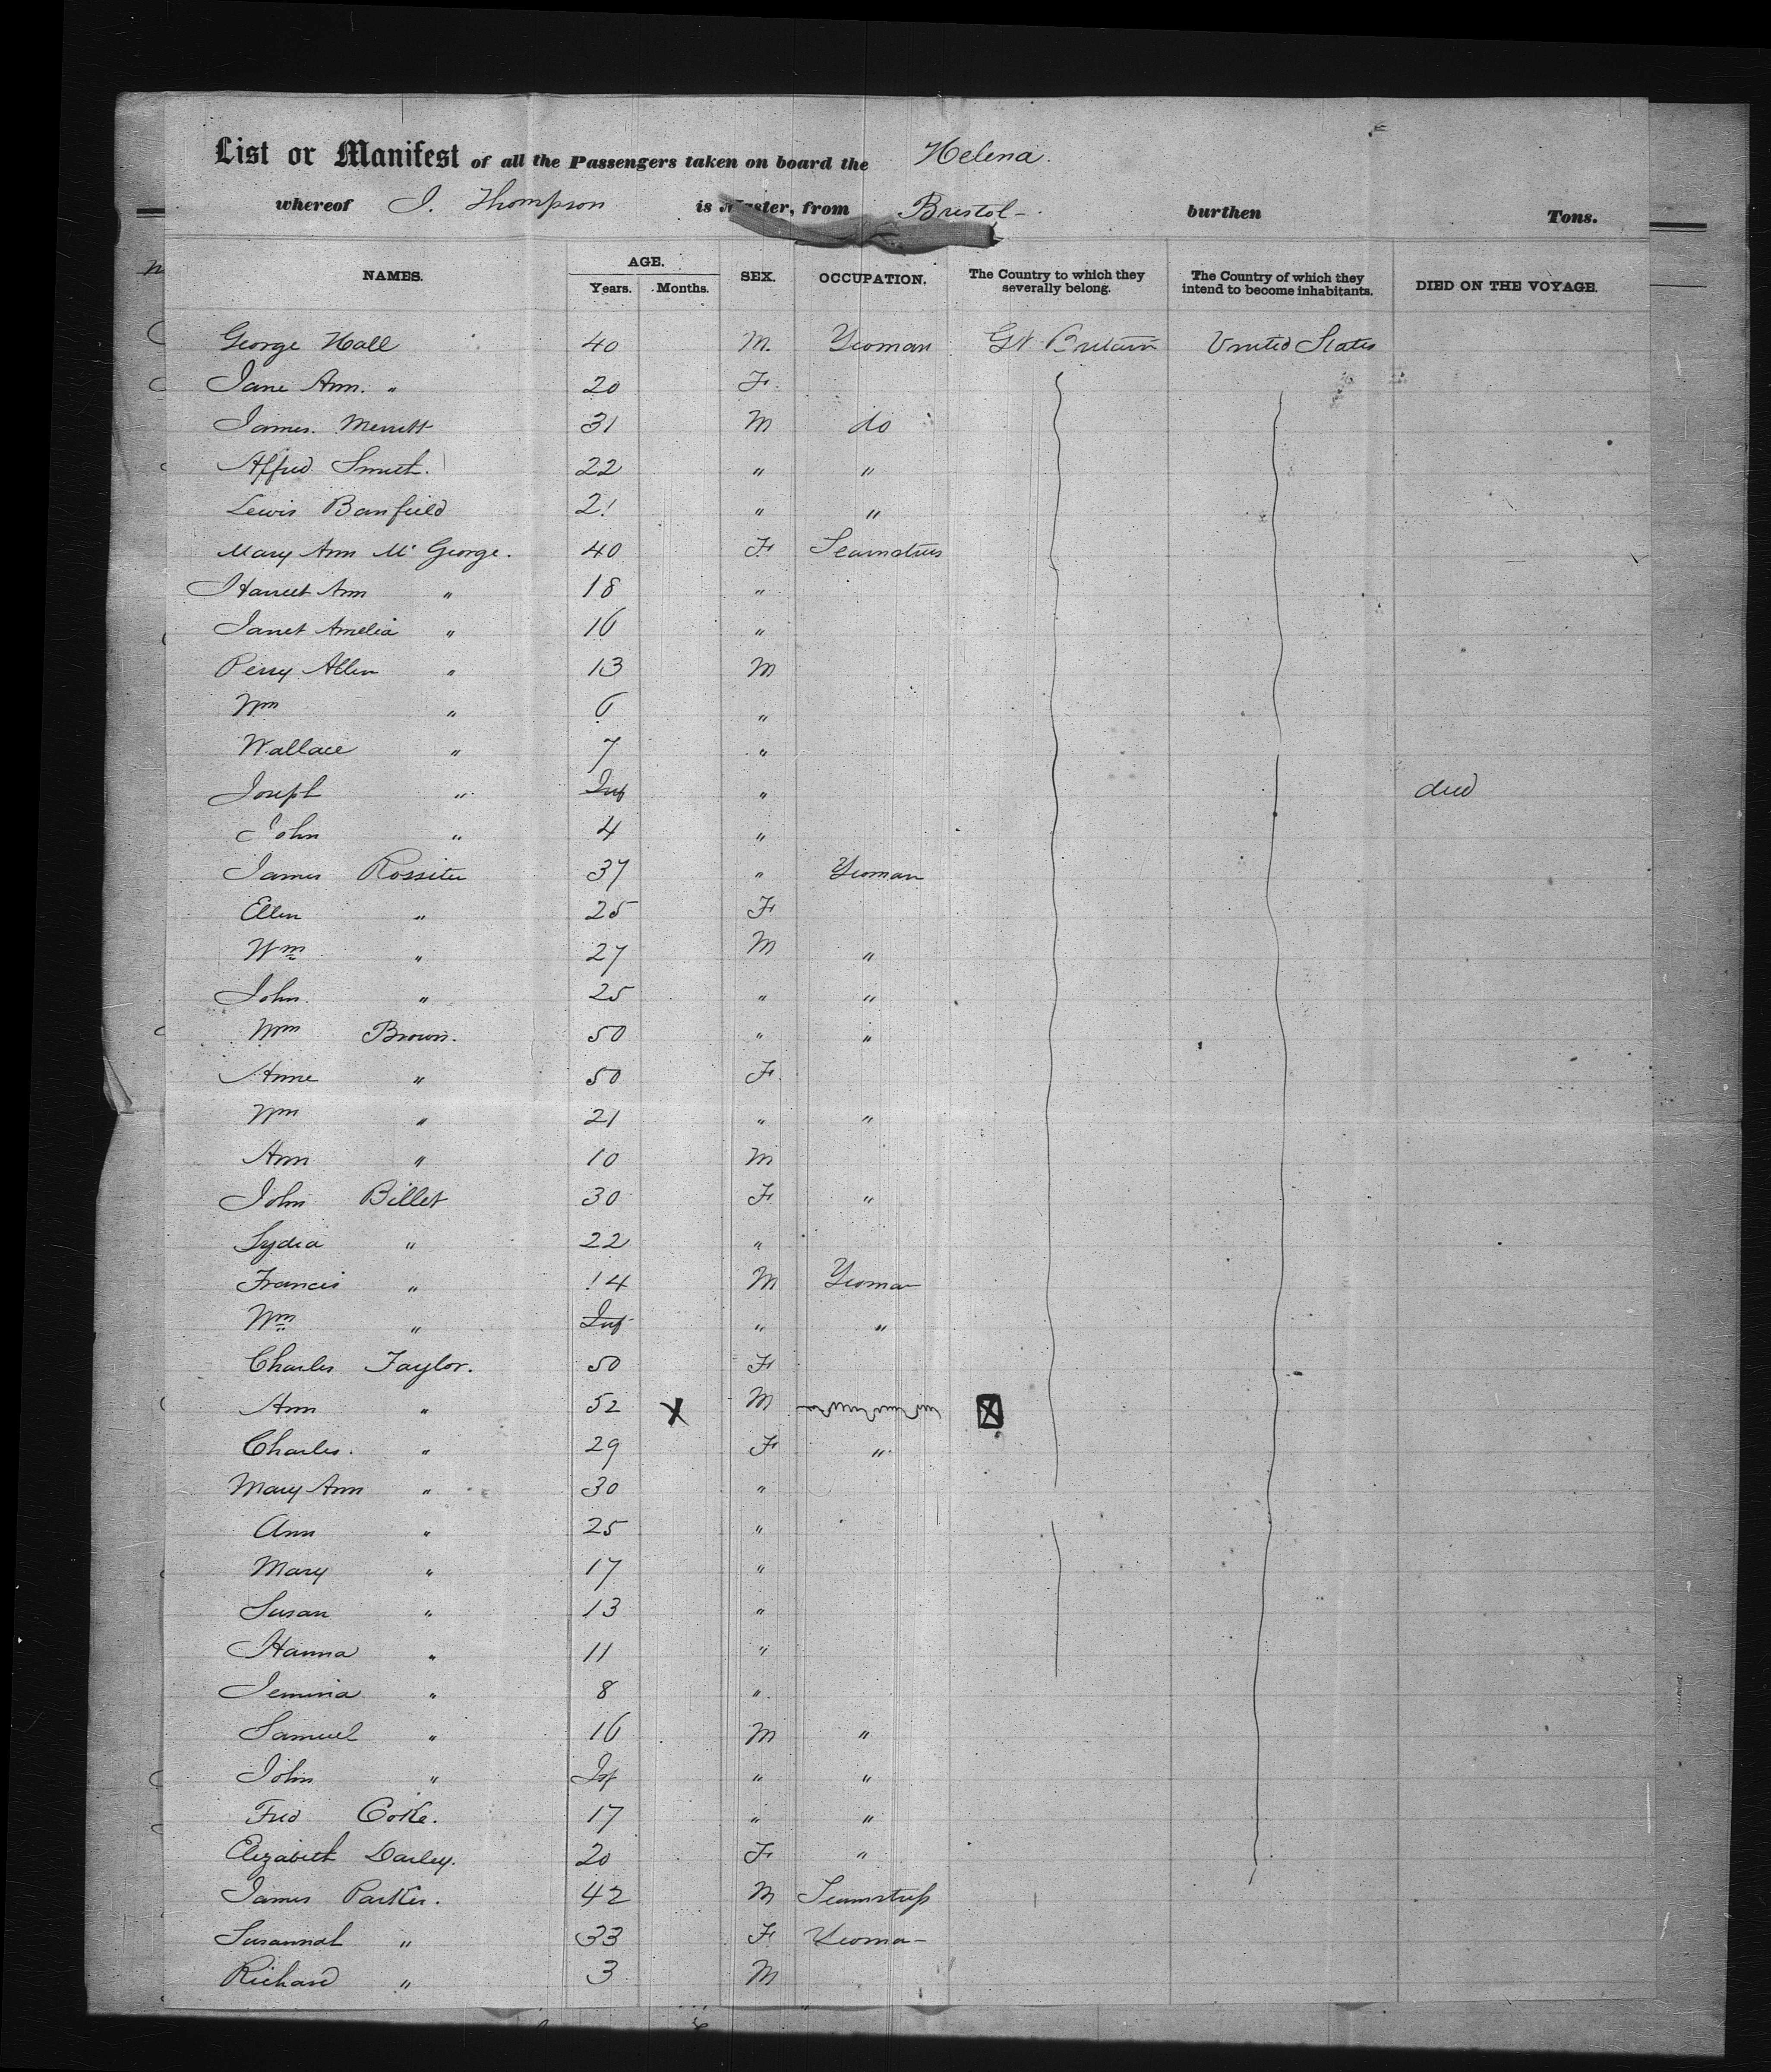 List or Manifest of all the Passengers taken on board the Helena.
whereof J. Thompson is Master, from Bristol - burthen Tons.
NAMES. AGE. Years. Months. SEX. OCCUPATION. The Country to which they severally belong. The Country of which they intend to become inhabitants. DIED ON THE VOYAGE.
George Hall 40 M. Yeoman Gt Britain United States
Jane Ann. " 20 F.
James. Merrett 31 M do
Alfred Smith. 22 " "
Lewis Banfield 21 " "
Mary Ann Mc George. 40 F Seamstress
Harriet Ann " 18 "
Janet Amelia " 16 "
Perry Allen " 13 M
Wm " 6 "
Wallace " 7 "
Joseph " Inf " died
John " 4 "
James Rossiter 37 " Yeoman
Ellen " 25 F
Wm " 27 M "
John " 25 " "
Wm Brown. 50 " "
Anne " 50 F.
Wm " 21 " "
Ann " 10 M
John Billet 30 F "
Lydia " 22 "
Francis " 14 M Yeoman
Wm " Inf " "
Charles Taylor. 50 F
Ann " 52 X M X
Charles. " 29 F "
Mary Ann " 30 "
Ann " 25 "
Mary " 17 "
Susan " 13 "
Hanna " 11 "
Jemima " 8 "
Samuel " 16 M "
John " Inf " "
Fred Coke. 17 " "
Elizabeth Darley. 20 F "
James Parker. 42 M Seamstress
Susannah " 33 F Yeoman
Richard " 3 M